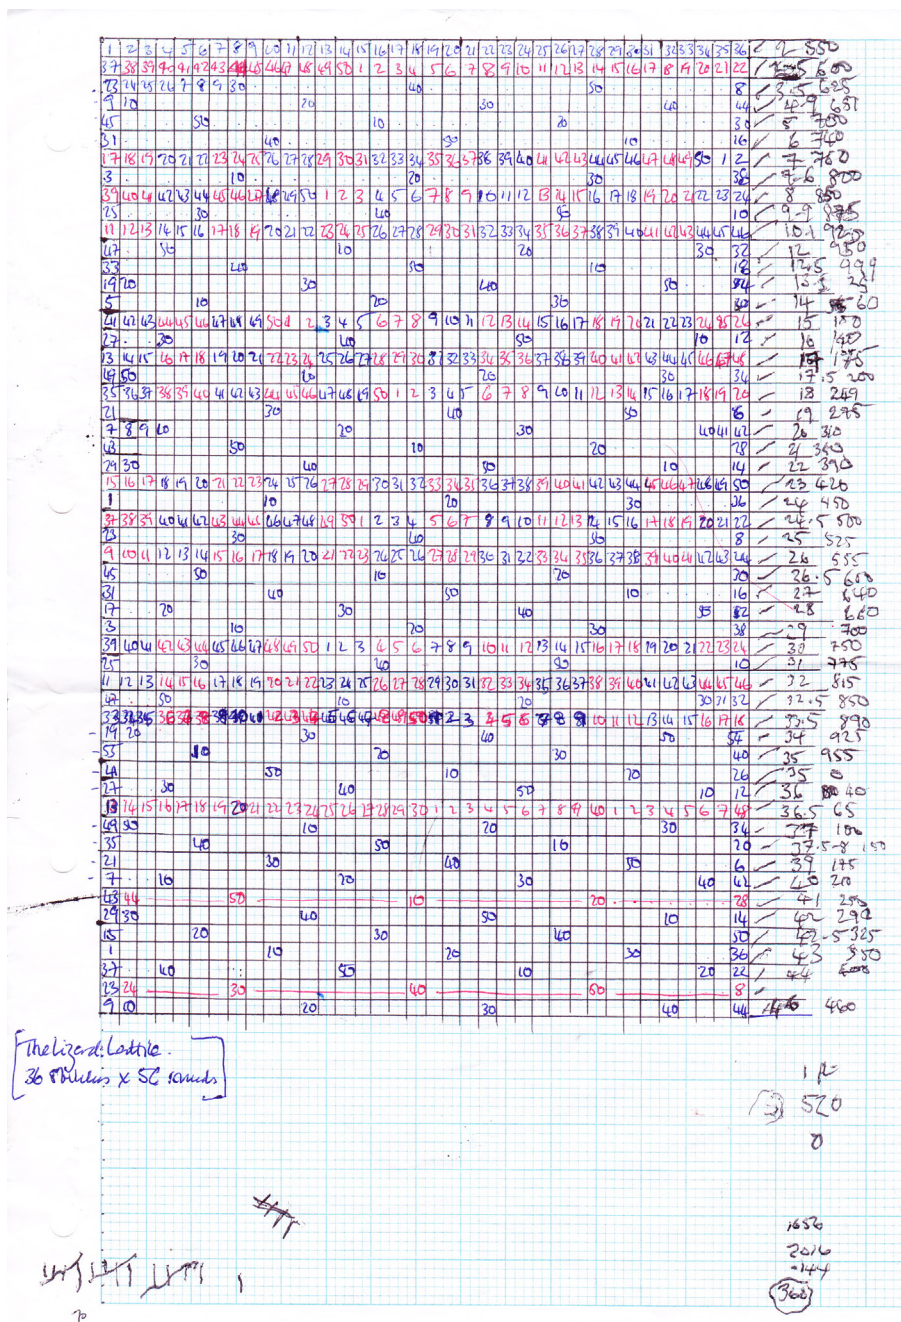 1 2 3 4 5 6 7 8 9 10 11 12 13 14 15 16 17 18 19 20 21 22 23 24 25 26 27 28 29 30 31 32 33 34 35 36 2 550
37 38 39 40 41 42 43 44 45 46 47 48 49 50 1 2 3 4 5 6 7 8 9 10 11 12 13 14 15 16 17 18 19 20 21 22 600
23 24 25 26 7 8 9 30 40 50 8 3.5 625
9 10 20 30 40 44 4.9 651
45 50 10 20 30 5 700
31 40 50 10 16 6 740
17 18 19 20 21 22 23 24 25 26 27 28 29 30 31 32 33 34 35 36 37 38 39 40 41 42 43 44 45 46 47 48 49 50 1 2 7 760
3 10 20 30 38 7.6 800
39 40 41 42 43 44 45 46 47 48 49 50 1 2 3 4 5 6 7 8 9 10 11 12 13 14 15 16 17 18 19 20 21 22 23 24 8 850
25 30 40 50 10 9.9 875
11 12 13 14 15 16 17 18 19 20 21 22 23 24 25 26 27 28 29 30 31 32 33 34 35 36 37 38 39 40 41 42 43 44 45 46 10.1 925
47 50 10 20 30 32 12 950
33 40 50 10 18 12.5 999
19 20 30 40 50 25
5 10 20 30 14 60
41 42 43 44 45 46 47 48 49 50 1 2 3 4 5 6 7 8 9 10 11 12 13 14 15 16 17 18 19 20 21 22 23 24 25 26 15 100
27 30 40 50 10 12 16 140
13 14 15 16 17 18 19 20 21 22 23 24 25 26 27 28 29 30 31 32 33 34 35 36 37 38 39 40 41 42 43 44 45 46 47 48 17 175
49 50 10 20 30 34 17.5 200
35 36 37 38 39 40 41 42 43 44 45 46 47 48 49 50 1 2 3 4 5 6 7 8 9 10 11 12 13 14 15 16 17 18 19 20 18 249
21 30 40 50 6 19 275
7 8 9 10 20 30 40 41 42 20 310
43 50 10 20 28 21 350
29 30 40 50 10 14 22 390
15 16 17 18 19 20 21 22 23 24 25 26 27 28 29 30 31 32 33 34 31 36 37 38 39 40 41 42 43 44 45 46 47 48 49 50 23 420
1 10 20 30 36 24 450
37 38 39 40 41 42 43 44 45 46 47 48 49 50 1 2 3 4 5 6 7 8 9 10 11 12 13 14 15 16 17 18 19 20 21 22 24.5 500
23 30 40 50 8 25 525
9 10 11 12 13 14 15 16 17 18 19 20 21 22 23 24 25 26 27 28 29 30 31 32 33 34 35 36 37 38 39 40 41 42 43 44 26 555
45 50 10 20 30 26.5 600
31 40 50 10 16 27 640
17 20 30 40 50 52 28 660
3 10 20 30 38 29 700
39 40 41 42 43 44 45 46 47 48 49 50 1 2 3 4 5 6 7 8 9 10 11 12 13 14 15 16 17 18 19 20 21 22 23 24 30 750
25 30 40 50 10 31 775
11 12 13 14 15 16 17 18 19 20 21 22 23 24 25 26 27 28 29 30 31 32 33 34 35 36 37 38 39 40 41 42 43 44 45 46 32 815
47 50 10 20 30 31 32 32.5 850
33 34 35 36 37 38 39 40 41 42 43 44 45 46 47 48 49 50 1 2 3 4 5 6 7 8 9 10 11 12 13 14 15 16 17 18 33.5 890
19 20 30 40 50 54 34 925
55 10 20 30 40 35 955
41 50 10 20 26 35 0
27 30 40 50 10 12 36 40
13 14 15 16 17 18 19 20 21 22 23 24 25 26 27 28 29 30 1 2 3 4 5 6 7 8 9 40 1 2 3 4 5 6 7 48 36.5 65
49 50 10 20 30 34 37 100
35 40 50 10 20 37.5-8 150
21 30 40 50 6 39 175
7 10 20 30 40 42 40 210
43 44 50 10 20 28 41 250
29 30 40 50 10 14 42 290
15 20 30 40 50 42.5 325
1 10 20 30 36 43 350
37 40 50 10 20 22 44 400
23 24 30 40 50 8
9 10 20 30 40 44 460
The Lizard: 
36 x 56 rounds
520
0
1656
2016
144
360